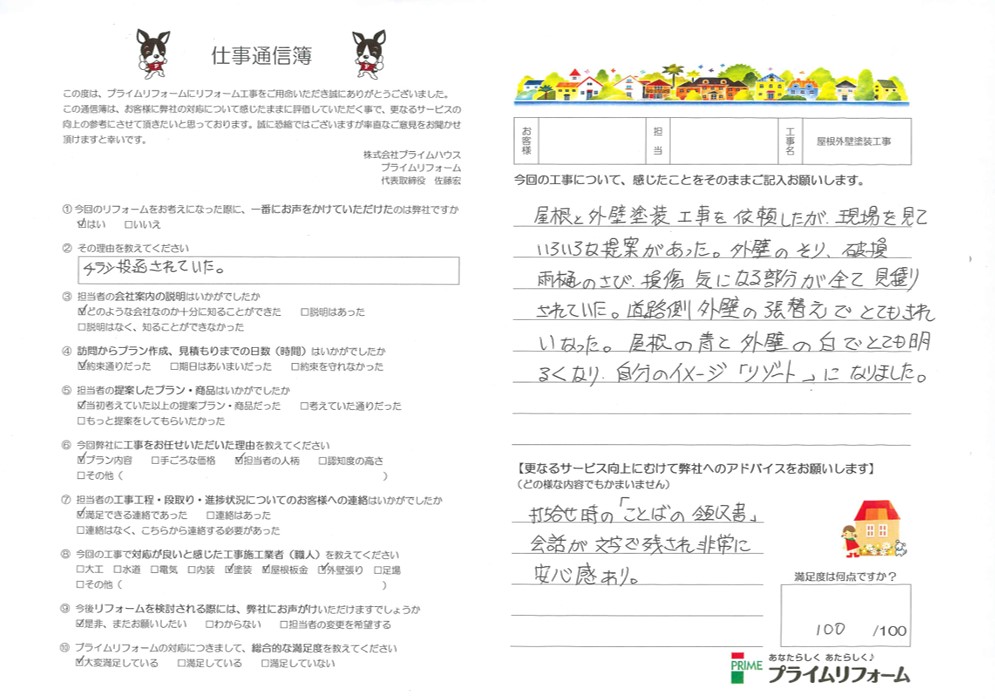 仕事通信簿
この度は、プライムリフォームにリフォーム工事をご用命いただき誠にありがとうございました。
この通信簿は、お客様に弊社の対応について感じたままに評価していただく事で、更なるサービスの
向上の参考にさせて頂きたいと思っております。誠に恐縮ではございますが率直なご意見をお聞かせ
頂けますと幸いです。
株式会社プライムハウス
プライムリフォーム
代表取締役 佐藤宏
① 今回のリフォームをお考えになった際に、一番にお声をかけていただけたのは弊社ですか
☑はい □いいえ
② その理由を教えてください
チラシ投函されていた。
③ 担当者の会社案内の説明はいかがでしたか
☑どのような会社なのか十分に知ることができた □説明はあった
□説明はなく、知ることができなかった
④ 訪問からプラン作成、見積もりまでの日数（時間）はいかがでしたか
☑約束通りだった □期日はあいまいだった □約束を守れなかった
⑤ 担当者の提案したプラン・商品はいかがでしたか
☑当初考えていた以上の提案プラン・商品だった □考えていた通りだった
□もっと提案をしてもらいたかった
⑥ 今回弊社に工事をお任せいただいた理由を教えてください
☑プラン内容 □手ごろな価格 ☑担当者の人柄 □認知度の高さ
□その他（ ）
⑦ 担当者の工事工程・段取り・進捗状況についてのお客様への連絡はいかがでしたか
☑満足できる連絡であった □連絡はあった
□連絡はなく、こちらから連絡する必要があった
⑧ 今回の工事で対応が良いと感じた工事施工業者（職人）を教えてください
□大工 □水道 □電気 □内装 ☑塗装 ☑屋根板金 ☑外壁張り □足場
□その他（ ）
⑨ 今後リフォームを検討される際には、弊社にお声がけいただけますでしょうか
☑是非、またお願いしたい □わからない □担当者の変更を希望する
⑩ プライムリフォームの対応につきまして、総合的な満足度を教えてください
☑大変満足している □満足している □満足していない
お客様 担当 工事名 屋根外壁塗装工事
今回の工事について、感じたことをそのままご記入お願いします。
屋根と外壁塗装工事を依頼したが、現場を見て
いろいろな提案があった。外壁のそり、破損
雨樋のさび、損傷 気になる部分が全て見積り
されていた。道路側外壁の張替えでとてもきれ
いなった。屋根の青と外壁の白でとても明
るくなり、自分のイメージ「リゾート」になりました。
【更なるサービス向上にむけて弊社へのアドバイスをお願いします】
（どの様な内容でもかまいません）
打合せ時の「ことばの領収書」
会話が文字で残され非常に
安心感あり。
満足度は何点ですか？
100 /100
PRIME あなたらしく あたらしく♪
プライムリフォーム